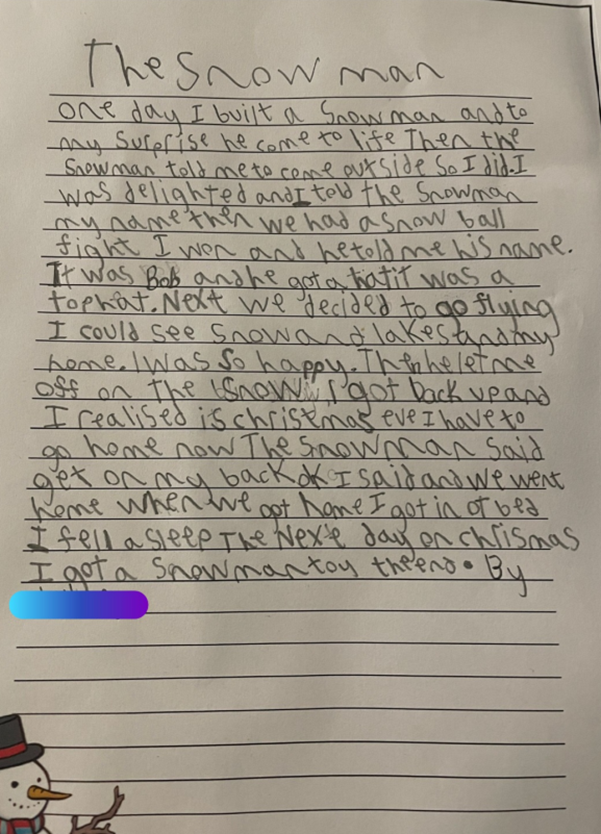 The Snow man
one day I built a Snowman and to
my Surprise he come to life Then the
Snowman told me to come outside So I did. I
was delighted and I told the Snowman
my name then we had a snow ball
fight I won and he told me his name.
It was Bob and he got a hat it was a
tophat. Next we decided to go flying
I could see snow and lakes and my
home. I was so happy. Then he let me
off on the snow I got back up and
I realised is christmas eve I have to
go home now The Snowman Said
get on my back ok I said and we went
home when we got home I got in ot bed
I fell a sleep The Nexte day on chrismas
I got a Snowman toy the end. By